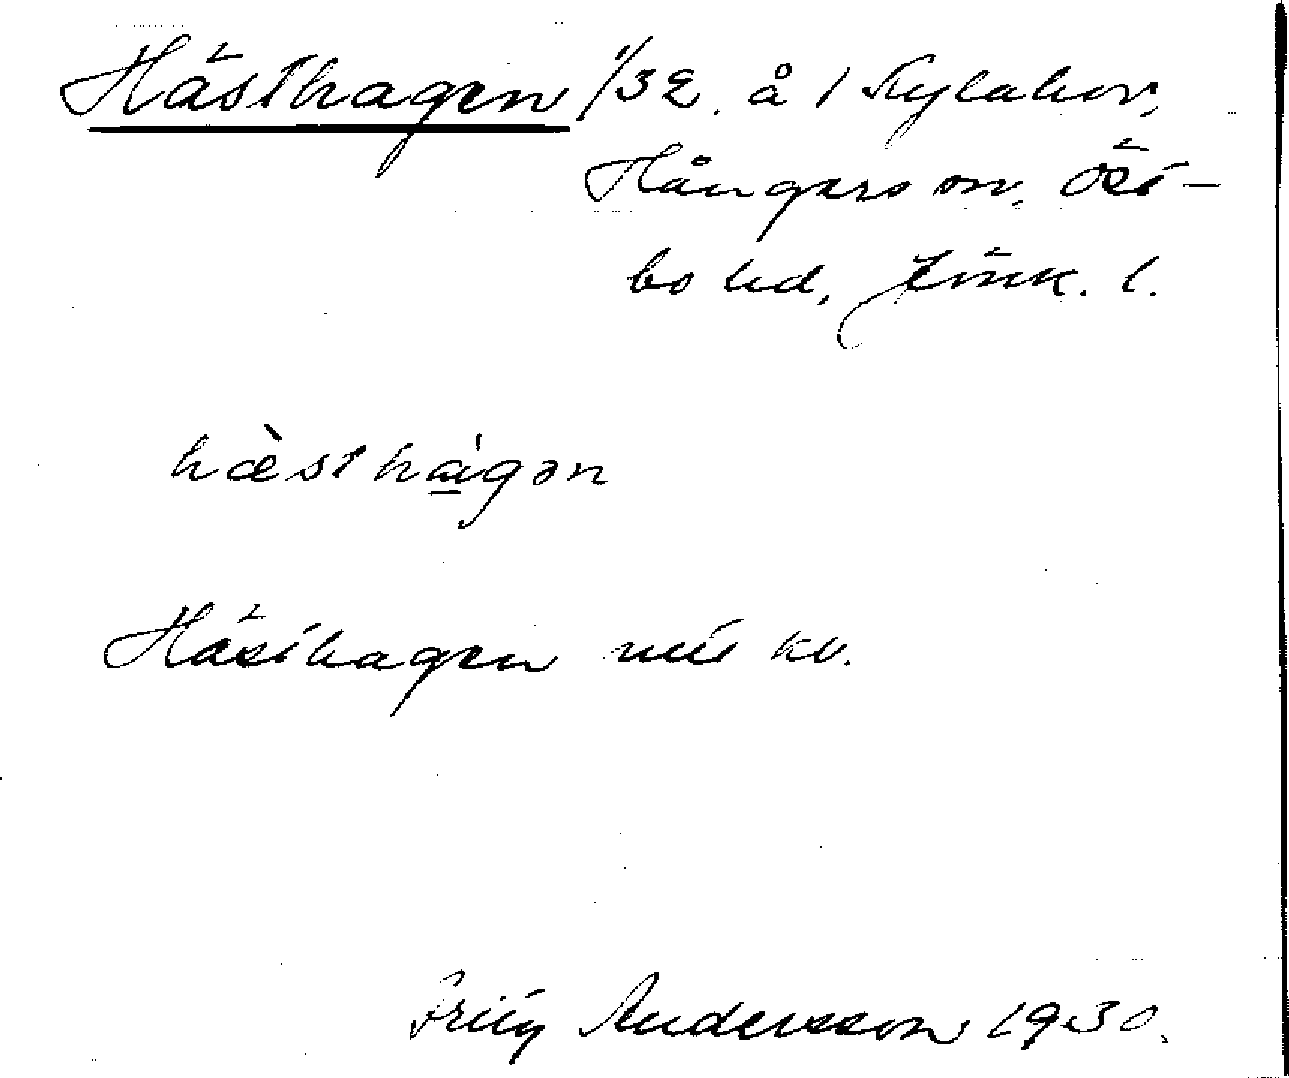 Hästhagen 1/32. å 1 Kylahov,
Hångers sn, Öst-
bo hd, Jönk. l.
hæ̀sthágən
Hästhagen utr kv.
Fritz Andersson 1930.